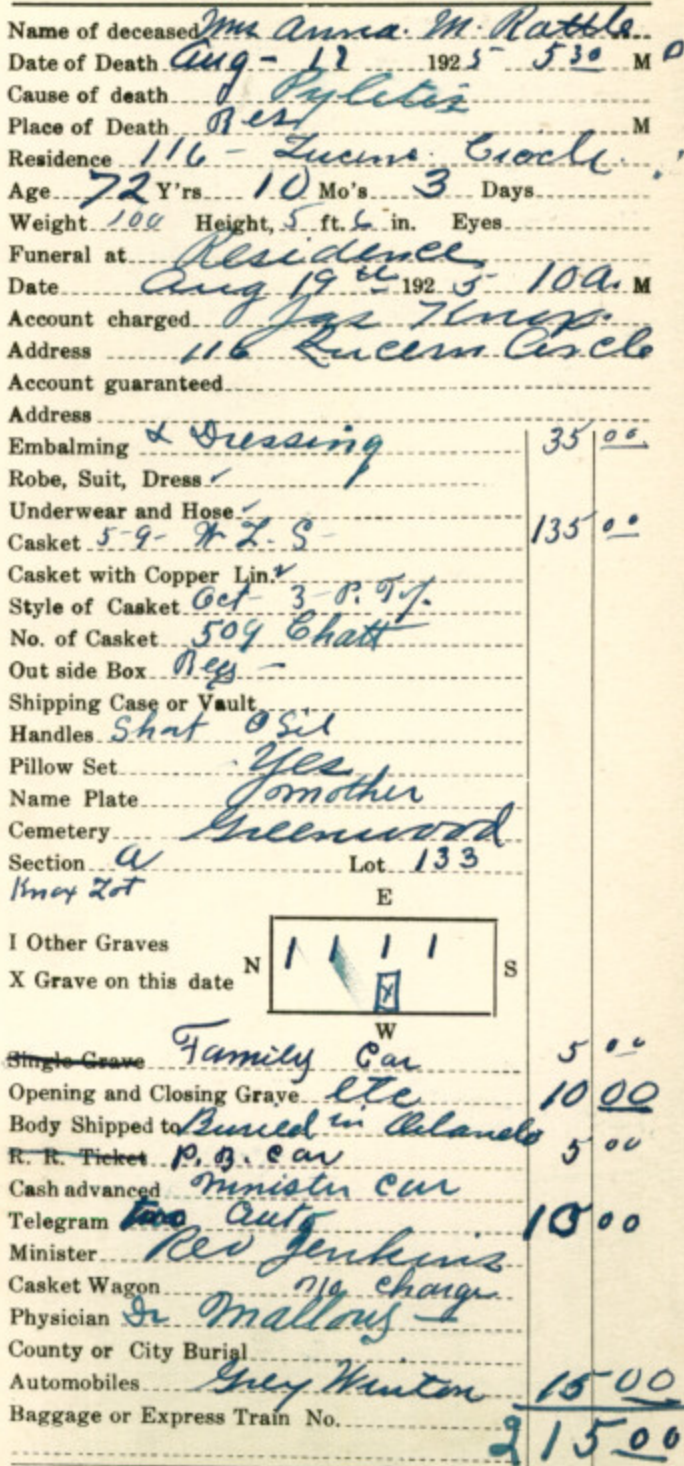 Name of deceased Mrs Anna. M. Rattle
Date of Death Aug - 18 1925 5 30 M P
Cause of death Pyletis
Place of Death Res M
Residence 116 - Lucern Circle.
Age 72 Y'rs 10 Mo's 3 Days
Weight 100 Height, 5 ft. 6 in. Eyes
Funeral at Residence
Date Aug 19th 1925 10 a. M
Account charged Jas Knox.
Address 116 Lucern Circle
Account guaranteed
Address
Embalming & Dressing 35 00
Robe, Suit, Dress ✓
Underwear and Hose ✓
Casket 5-9- W. L. S- 135 00
Casket with Copper Lin. ✓
Style of Casket Oct- 3-P.
No. of Casket 509 Chatt
Out side Box Reg -
Shipping Case or Vault
Handles Shat O Sil
Pillow Set Yes
Name Plate Mother
Cemetery Greenwood
Section A Lot 133
Knox Lot
E
I Other Graves
X Grave on this date
N
I I I I
X
S
W
Single Grave Family Car 5 00
Opening and Closing Grave etc 10 00
Body Shipped to Buried in Orlando
R. R. Ticket P. B. Car 5 00
Cash advanced Minister Car
Telegram two auto 10 00
Minister Rev Jenkins
Casket Wagon no charge
Physician Dr Mallory -
County or City Burial
Automobiles Grey Winton 15 00
Baggage or Express Train No. 215 00